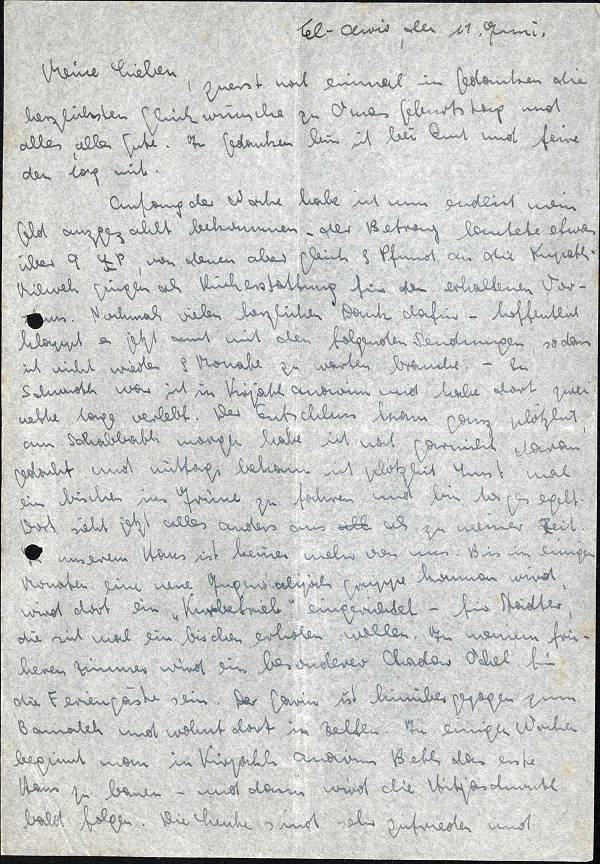 Tel-Awiv, den 11. Juni.
Meine Lieben, zuerst noch einmal in Gedanken die
herzlichsten Glückwünsche zu Omas Geburtstag und
alles, alles Gute. In Gedanken bin ich bei Euch und feire
den Tag mit.
Anfang der Woche habe ich nun endlich mein
Geld ausgezahlt bekommen - der Betrag lautete etwas
über 9 £P, von denen aber gleich 8 Pfund an die Kupath-
gingen als Rückerstattung für den erhaltenen Vor-
schuss. Nochmal vielen herzlichen Dank dafür - hoffentlich
klappt es jetzt auch mit den folgenden Sendungen, sodass
ich nicht wieder 8 Monate zu warten brauche. - Zu
Schwuoth war ich in Kirjath Anawim und habe dort zwei
nette Tage verlebt. Der Entschluss kam ganz plötzlich,
am Schabbath morgen habe ich noch garnicht daran
gedacht und mittags bekam ich plötzlich Lust mal
ein bischen ins Grüne zu fahren und bin losgesegelt.
Dort sieht jetzt alles anders aus als zu meiner Zeit.
In unserem Haus ist keiner mehr von uns. Bis in einigen
Monaten eine neue Jugendalijah gruppe kommen wird,
wird dort ein „Kurbetrieb" eingerichtet - für Städter,
die sich mal ein bischen erholen wollen. In meinem frü-
heren Zimmer wird ein besonderer Chadar Ochel für
die Feriengäste sein. Der Garin ist hinübergezogen zum
Bamaleh und wohnt dort in Zelten. In einigen Wochen
beginnt man in Kirjath Anawim Beth das erste
Haus zu bauen - und dann wird die Hitjaschwuth
bald folgen. Die Leute sind sehr zufrieden und